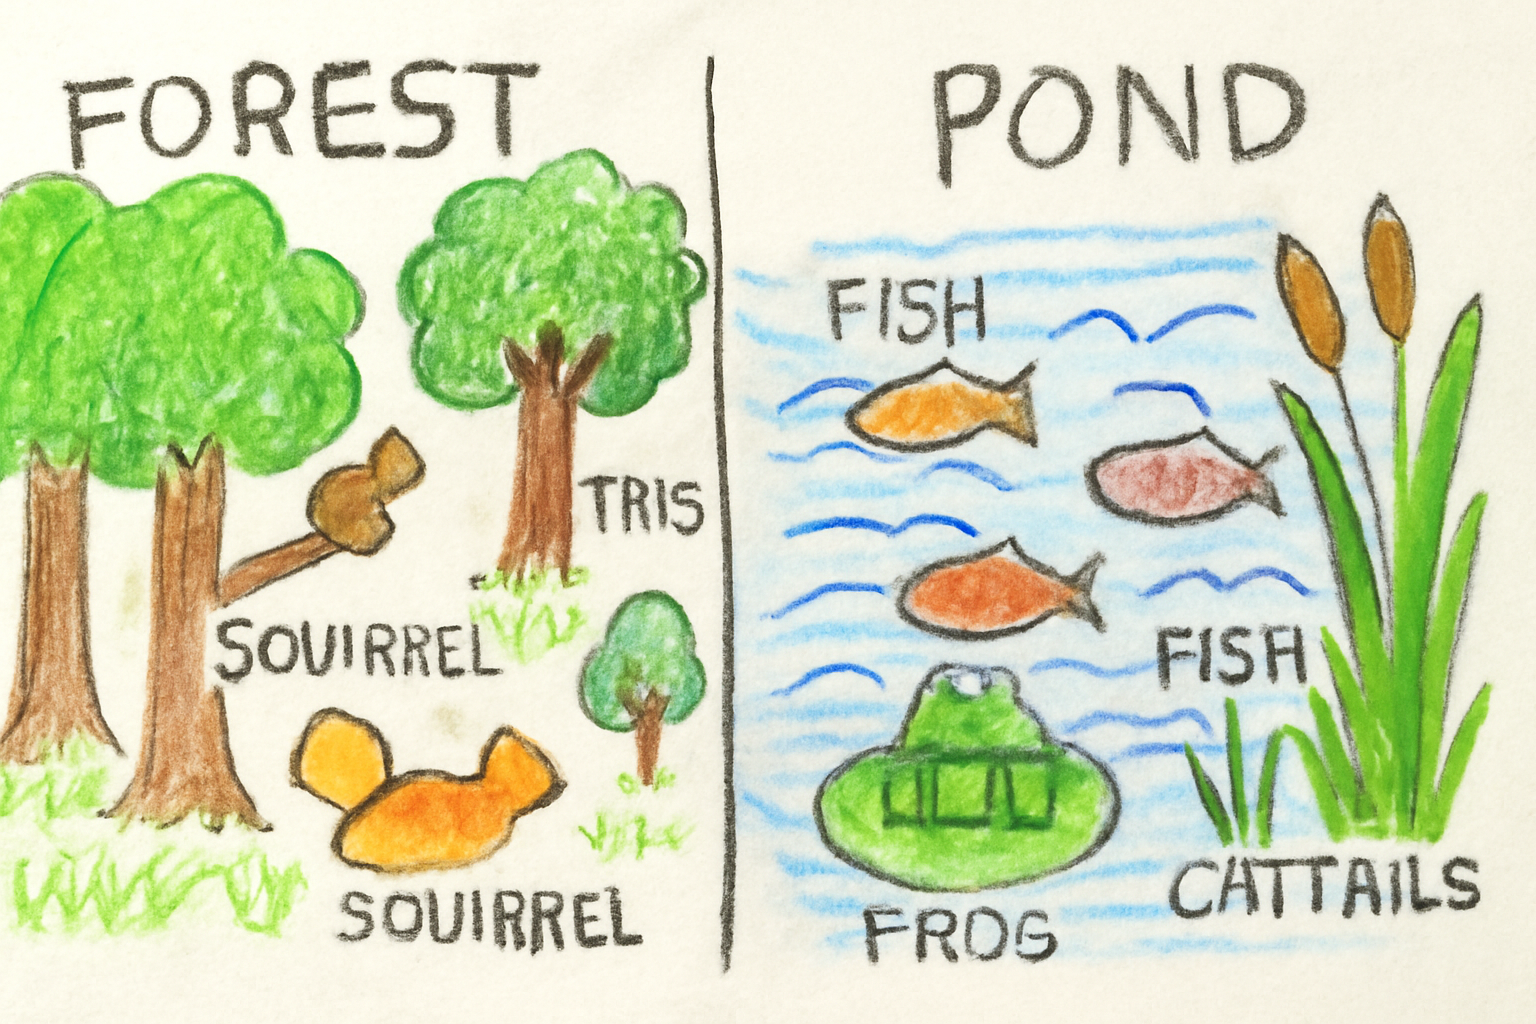 FOREST
TRIS
SOUIRREL
SOUIRREL
POND
FISH
FISH
CATTAILS
FROG